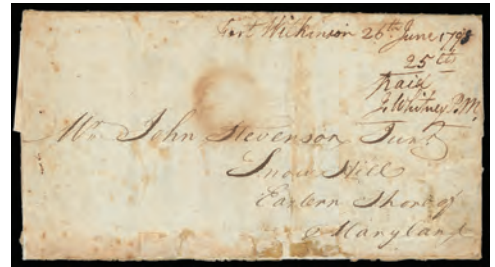 Fort Wilkinson 26th June 1798
25 cts
Paid
J. Whitney P.M.
Mr. John Stevenson Junr
Snow Hill
Eastern Shore of
Maryland